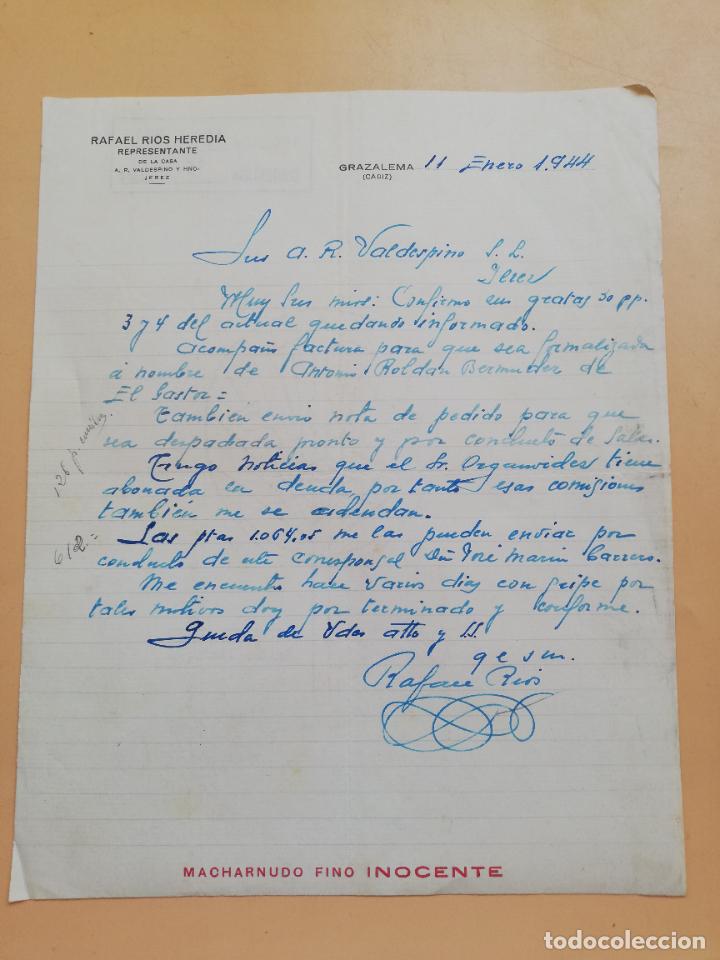 RAFAEL RIOS HEREDIA
REPRESENTANTE
DE LA CASA
A. R. VALDESPINO Y HNO.
JEREZ
GRAZALEMA 11 Enero 1.944
(CADIZ)
Srs A. R. Valdespino S. L.
Jerez
Muy Srs mios: Confirmo sus gratas 30 pp.
3 y 4 del actual quedando informado.
Acompaño factura para que sea formalizada
á nombre de Antonio Roldan Bermudez de
El Gastor =
También envio nota de pedido para que
sea despachada pronto y por conducto de Salas.
Tengo noticias que el Sr. tiene
abonada la deuda, por tanto esas comisiones
también me se
Las ptas 1.064,05 me las pueden enviar por
conducto de este corresponsal Dn José Marin Carrero.
Me encuentro hace varios dias con gripe por
tales motivos doy por terminado y conforme.
Queda de Vdes atto y S.S.
q e s m.
Rafael Rios
126 p.
612. =
MACHARNUDO FINO INOCENTE
todocoleccion.net